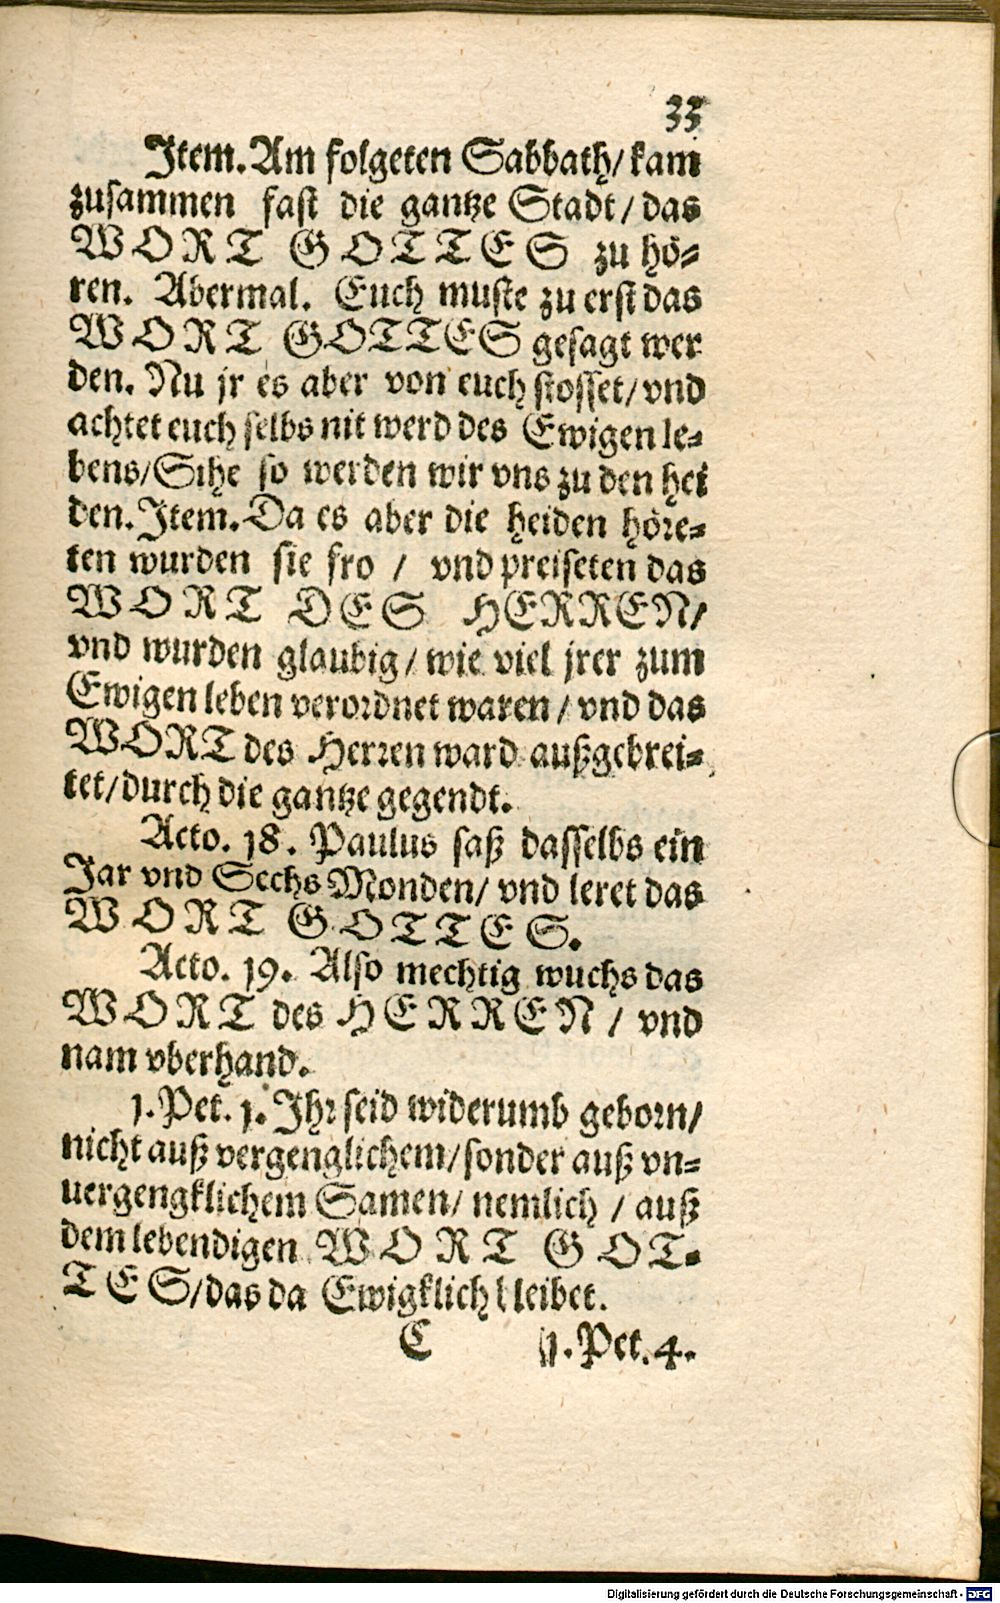 33
Item. Am folgeten Sabbath/ kam
zusammen fast die gantze Stadt/ das
WORT GOTTES zu hö-
ren. Abermal. Euch muste zu erst das
WORT GOTTES gesagt wer
den. Nu jr es aber von euch stosset/ vnd
achtet euch selbs nit werd des Ewigen le-
bens/ Sihe so werden wir vns zu den hei
den. Item. Da es aber die heiden höre-
ten wurden sie fro / vnd preiseten das
WORT DES HERREN/
vnd wurden glaubig/ wie viel jrer zum
Ewigen leben verordnet waren/ vnd das
WORT des Herren ward außgebrei-
tet/ durch die gantze gegendt.
Acto. 18. Paulus saß dasselbs ein
Jar vnd Sechs Monden/ vnd leret das
WORT GOTTES.
Acto. 19. Also mechtig wuchs das
WORT des HERREN/ vnd
nam vberhand.
1. Pet. 1. Ihr seid widerumb geborn/
nicht auß vergenglichem/ sonder auß vn-
uergengklichem Samen/ nemlich / auß
dem lebendigen WORT GOT-
TES/ das da Ewigklich bleibet.
C 1. Pet. 4.
Digitalisierung gefördert durch die Deutsche Forschungsgemeinschaft - DFG